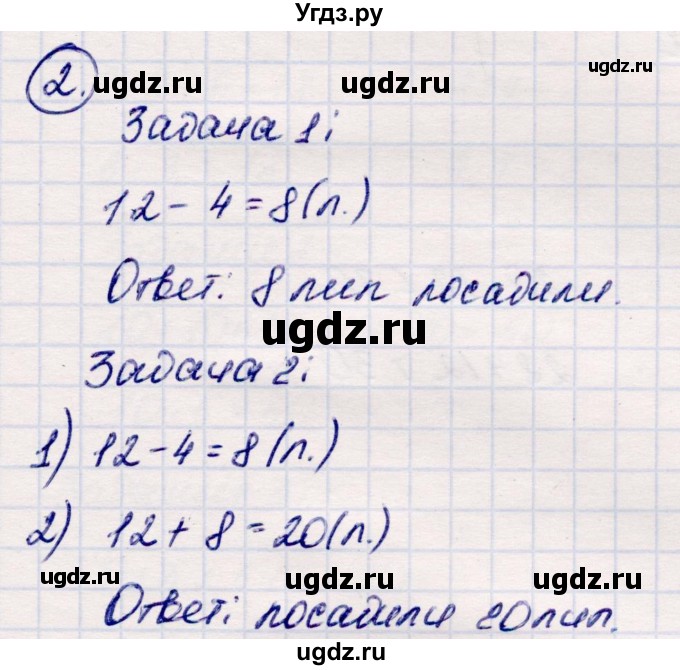 Угдз.ру
ugdz.ru
2. ugdz.ru ugdz.ru
Задача 1:
12 - 4 = 8 (л.)
Ответ: 8 лип посадили.
ugdz.ru
Задача 2:
1) 12 - 4 = 8 (л.)
2) 12 + 8 = 20 (л.)
ugdz.ru ugdz.ru
Ответ: посадили 20 лип.
ugdz.ru